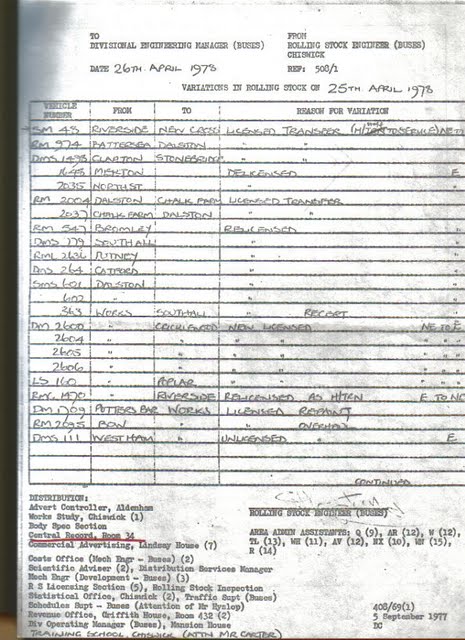 TO FROM
DIVISIONAL ENGINEERING MANAGER (BUSES) ROLLING STOCK ENGINEER (BUSES)
CHISWICK
DATE 26TH APRIL 1978 REF: 508/1
VARIATIONS IN ROLLING STOCK ON 25TH APRIL 1978
VEHICLE NUMBER FROM TO REASON FOR VARIATION
SM 48 RIVERSIDE NEW CROSS LICENSED TRANSFER
RM 974 BATTERSEA DALSTON " "
DMS 1493 CLAPTON STONEBRIDGE " "
1648 MERTON DELICENSED E
2035 NORTH ST. "
RM 2004 DALSTON CHALK FARM LICENSED TRANSFER
2037 CHALK FARM DALSTON " "
RM 547 BROMLEY RELICENSED
DMS 779 SOUTHALL "
RML 2636 PUTNEY "
DMS 264 CATFORD "
SMS 601 DALSTON "
602 " "
363 WORKS SOUTHALL " RECERT
DM 2600 " CRICKLEWOOD NEW LICENSED NE TO E
2604 " " " "
2605 " " " "
2606 " " " "
LS 160 " POPLAR " "
1470 RIVERSIDE RELICENSED AS H/TRN E TO NE
DM 1709 POTTERS BAR WORKS LICENSED REPAINT
RM 2095 BOW " " OVERHAUL
DMS 111 WEST HAM " UNLICENSED " E
CONTINUED
DISTRIBUTION:
Advert Controller, Aldenham
Works Study, Chiswick (1) ROLLING STOCK ENGINEER (BUSES)
Body Spec Section
Central Record, Room 34 AREA ADMIN ASSISTANTS: Q (9), AR (12), W (12),
Commercial Advertising, Landsay House (7) TL (13), WH (11), AV (12), NX (10), WN (15),
R (14)
Costs Office (Mech Engr - Buses) (2)
Scientific Adviser (2), Distribution Services Manager
Mech Engr (Development - Buses) (3)
R S Licensing Section (5), Rolling Stock Inspection
Statistical Office, Chiswick (2), Traffic Supt (Buses)
Schedules Supt - Buses (Attention of Mr Hynlop) 408/69(1)
Revenue Office, Griffith House, Room 432 (2) 5 September 1977
Div Operating Manager (Buses), Mansion House DC
TRAINING SCHOOL, CHISWICK (ATTN MR CARTER)